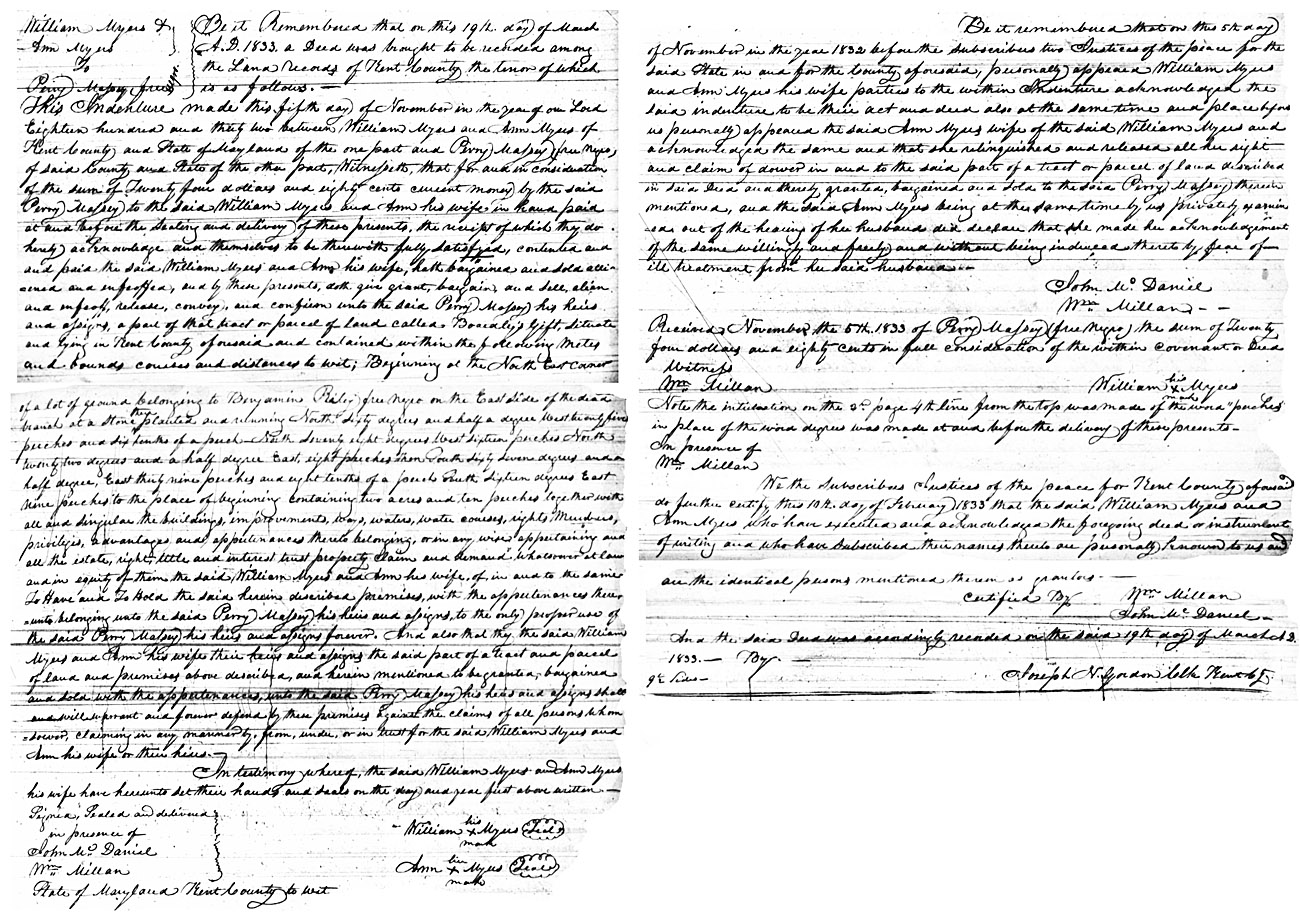 William Myers &
Ann Myers
To
Perry Massey free Negro
Be it Remembered that on this 19th day of March
A.D. 1833. a Deed was brought to be recorded among
the Land records of Kent County the tenor of which
is as follows.—
This Indenture made this fifth day of November in the year of our Lord
Eighteen hundred and thirty two between William Myers and Ann Myers of
Kent County and State of Maryland of the one part and Perry Massey (free Negro,
of said County and State of the other part, Witnesseth, that for and in consideration
of the sum of Twenty four dollars and eighty cents current money by the said
Perry Massey to the said William Myers and Ann his wife in hand paid
at and before the Sealing and delivery of these presents, the receipt of which they do
hereby acknowledge and themselves to be therewith fully satisfied, contented and
and paid the said William Myers and Ann his wife, hath bargained and sold alli-
-ened and enfeoffed, and by these presents, doth give grant, bargain, and sell, alien
and enfeoff, release, convey, and confirm unto the said Perry Massey his heirs
and assigns, a part of that tract or parcel of land called Gift, Situate
and lying in Kent County aforesaid and contained within the following metes
and bounds courses and distances to wit; Beginning at the North East corner
of a lot of ground belonging to Benjamin free negro on the East Side of the dead
branch at a Stone planted and running North Sixty degrees and half a degree West twenty five
perches and six tenths of a perch North Seventy eight degrees West Sixteen perches North
twenty two degrees and a half degree East, eight perches then South Sixty Seven degrees and a
half degree, East thirty nine perches and eight tenths of a perch South Sixteen degrees East
nine perches to the place of beginning containing two acres and ten perches together with
all and singular the buildings, improvements, ways, waters, water courses, rights, Members,
privileges, advantages and appurtenances thereto belonging, or in any wise appertaining and
all the estate, right, title and interest trust property Claim and demand whatsoever at law
and in equity of them the said William Myers and Ann his wife, of, in and to the same
To Have and To Hold the said herein described premises, with the appertenances there-
-unto belonging unto the said Perry Massey his heirs and assigns, to the only proper use of
the said Perry Massey his heirs and assigns forever. And also that they the said William
Myers and Ann his wife their heirs and assigns the said part of a tract and parcel
of land and premises above described, and herein mentioned to be granted, bargained
and sold with the appertenances, unto the said Perry Massey his heirs and assigns shall
and will warrant and forever defend by these premises against the claims of all persons whom
=soever, claiming in any manner by, from, under, or in trust for the said William Myers and
Ann his wife or their heirs.—
In testimony whereof, the said William Myers and Ann Myers
his wife have hereunto set their hands and seals on the day and year first above written—
Signed, Sealed and delivered
in presence of
John Mc Daniel
Wm Millan
William his x mark Myers (Seal)
Ann her x mark Myers (Seal)
State of Maryland Kent County to wit
Be it remembered that on this 5th day
of November in the year 1832 before the Subscribers two Justices of the peace for the
said State in and for the County aforesaid, personally appeared William Myers
and Ann Myers his wife parties to the within Indenture acknowledged the
said indenture to be their act and deed also at the same time and place before
us personally appeared the said Ann Myers wife of the said William Myers and
acknowledged the same and that she relinquished and released all her right
and claim of dower in and to the said part of a tract or parcel of land described
in said Deed and thereby, granted, bargained and sold to the said Perry Massey therein
mentioned, and the said Ann Myers being at the same time by us privately examin
-ed out of the hearing of her husband did declare that she made her acknowledgement
of the same willingly and freely and without being induced thereto by fear of—
ill treatment from her said husband.—
John Mc Daniel
Wm Millan.—
Received November, the 5th. 1833 of Perry Massey (free Negro) the sum of Twenty
four dollars and eighty cents in full consideration of the within covenant or Deed
Witness
Wm Millan
William his x mark Myers
Note the interlination on the 3d page 4th line from the top was made of the word "perches"
in place of the word degrees was made at and before the delivery of these presents—
In presence of
Wm Millan
We the Subscribers Justices of the peace for Kent County aforesaid
do further certify this 10th. day of February 1833 that the said William Myers and
Ann Myers who have executed and acknowledged the foregoing deed or instrument
of writing and who have Subscribed their names thereto are personally known to us and
are the identical persons mentioned therein as grantors.—
Certified By
Wm Millan
John Mc Daniel—
And the said Deed was accordingly recorded on the said 19th day of March A.D.
1833.— By —
Joseph N. Gordon Clk Kent Cty